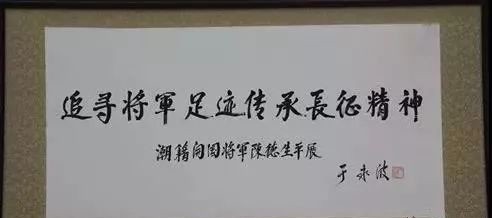 追寻将軍足迹传承長征精神
潮籍開国将軍陳德生平展
于永波